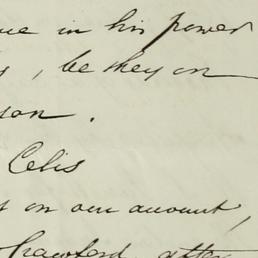 in his power
, be they on
son.
Celis
on our account,
Crawford after